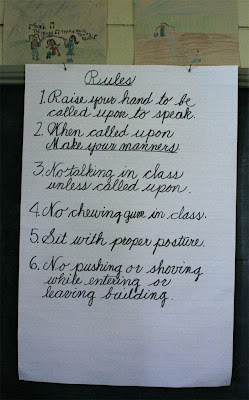 Rules
1. Raise your hand to be
called upon to speak.
2. When called upon
Make your manners
3. No talking in class
unless called upon.
4. No chewing gum in class.
5. Sit with proper posture.
6. No pushing or shoving
while entering or
leaving building.